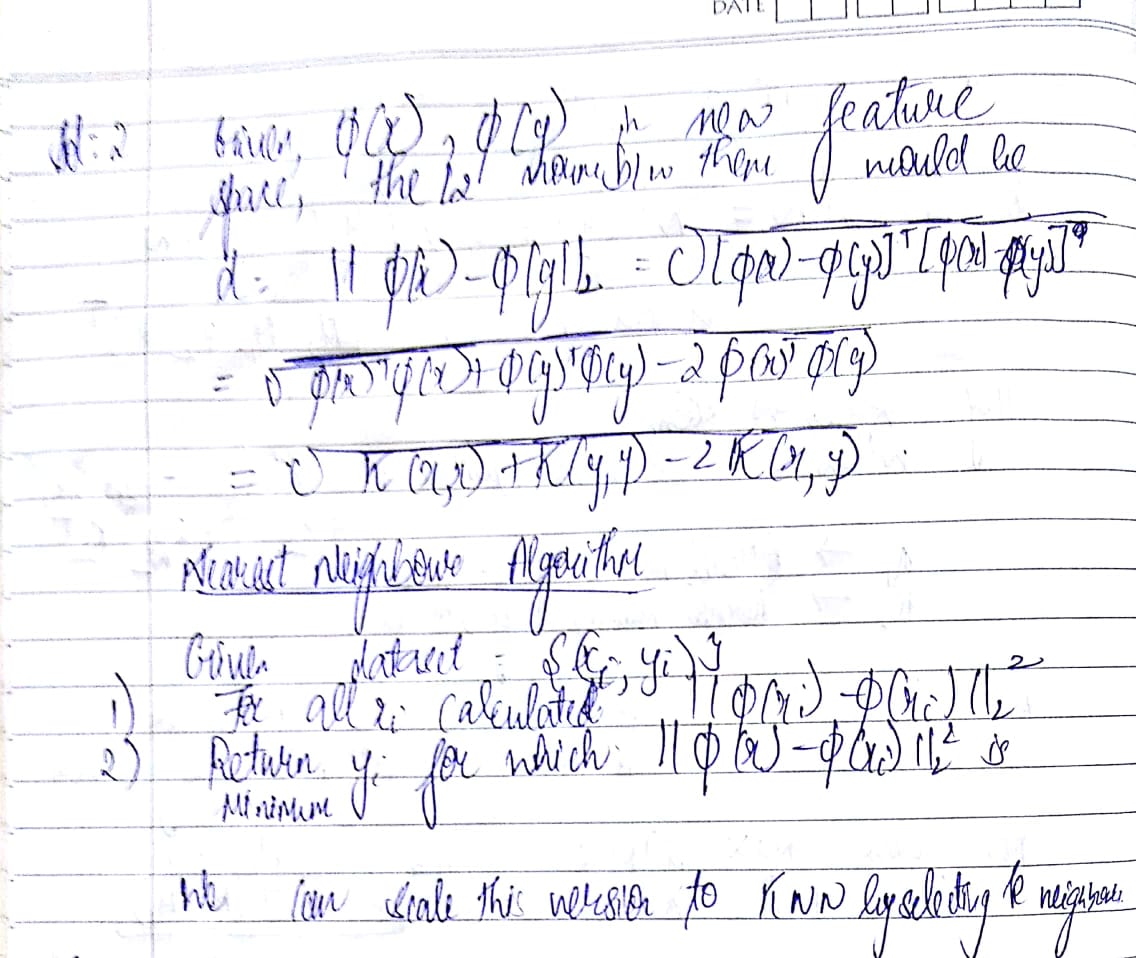 DATE
Given, φ(x), φ(y) in new feature
space, the l2 b/w them would be
d = || φ(x) - φ(y) ||₂ = √[φ(x) - φ(y)]ᵀ[φ(x) - φ(y)]
= √φ(x)ᵀφ(x) + φ(y)ᵀφ(y) - 2φ(x)ᵀφ(y)
= √K(x,x) + K(y,y) - 2K(x,y)
Nearest neighbours Algorithm
Given dataset = {(xᵢ, yᵢ)}
1) For all xᵢ calculated || φ(xᵢ) - φ(xᵢ) ||₂²
2) Return yᵢ for which || φ(x) - φ(xᵢ) ||₂² is
Minimum
We can scale this version to KNN by selecting k neighbours.